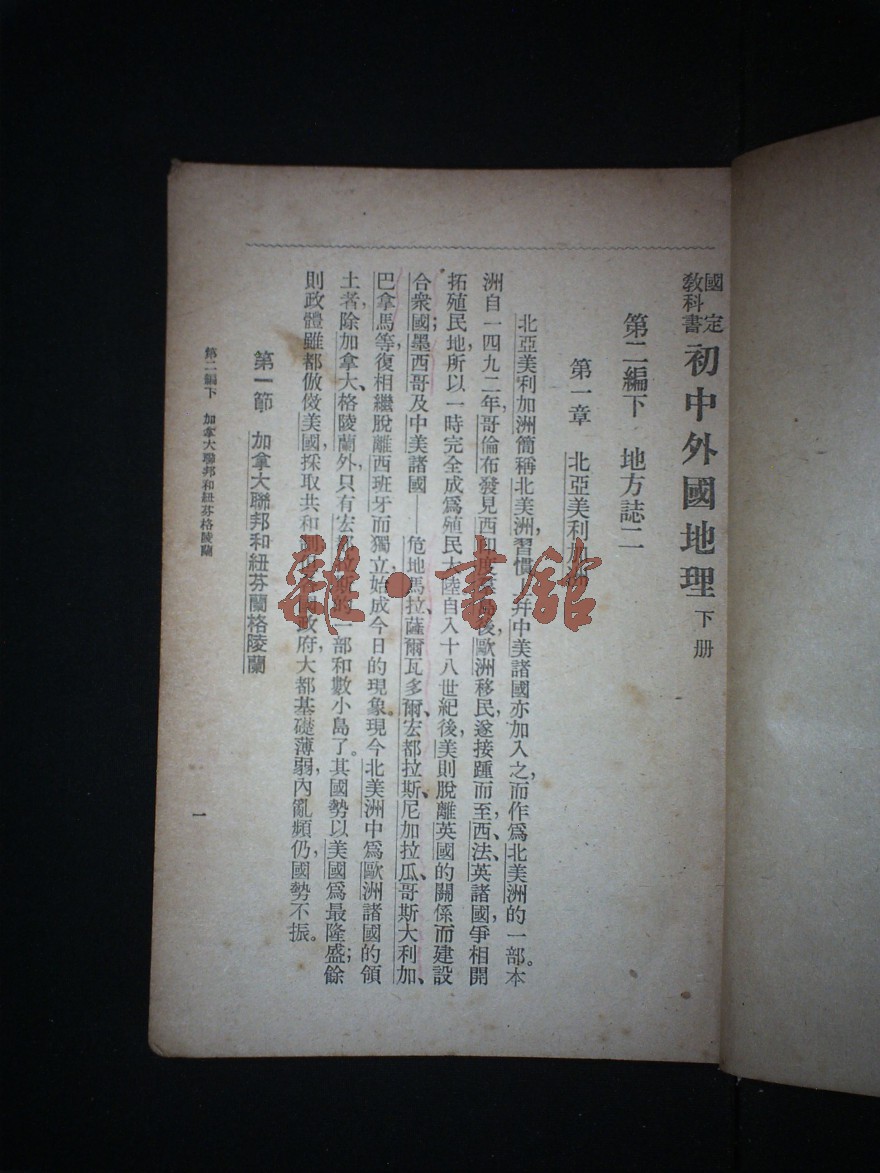 國定教科書 初中外國地理 下册
第二編下 地方誌二
第一章 北亞美利加洲
北亞美利加洲簡稱北美洲,習慣上幷中美諸國亦加入之,而作爲北美洲的一部。本
洲自一四九二年,哥倫布發見西印度羣島後,歐洲移民,遂接踵而至,西、法、英諸國,爭相開
拓殖民地,所以一時完全成爲殖民大陸。自入十八世紀後,美則脫離英國的關係而建設
合衆國;墨西哥及中美諸國——危地馬拉、薩爾瓦多爾、宏都拉斯、尼加拉瓜、哥斯大利加、
巴拿馬等,復相繼脫離西班牙而獨立,始成今日的現象。現今北美洲中爲歐洲諸國的領
土者,除加拿大、格陵蘭外,只有宏都拉斯的一部和數小島了。其國勢以美國爲最隆盛;餘
則政體雖都倣傚美國,採取共和制,但各國政府,大都基礎薄弱,內亂頻仍,國勢不振。
第一節 加拿大聯邦和紐芬蘭格陵蘭
第二編下 加拿大聯邦和紐芬格陵蘭
一
雜·書館